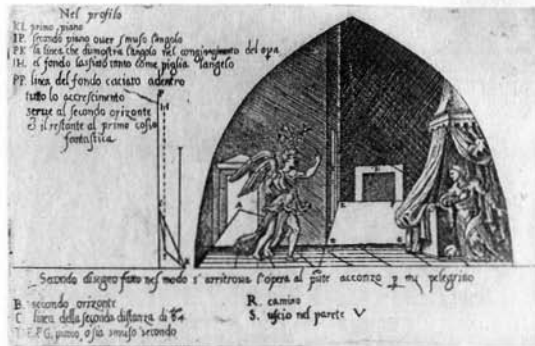 Nel profilo
KI. primo piano
IP. secondo piano over smuso langolo
PK la linea che dimostra langolo nel congiungimento del opa
IH. el fondo lassato tanto come piglia langelo
PP. linea del fondo caciato adentro
tutto lo accrescimento
serue al secondo orizonte
& il restante al primo cosa
fantastica
Secondo disegno fatto nel modo s'arritroua l'opera al pnte acconzo p my pelegrino
B. secondo orizonte
C linea della seconda distanza di
piano, o sia smuso secondo
R. camino
S. uscio nel parete V